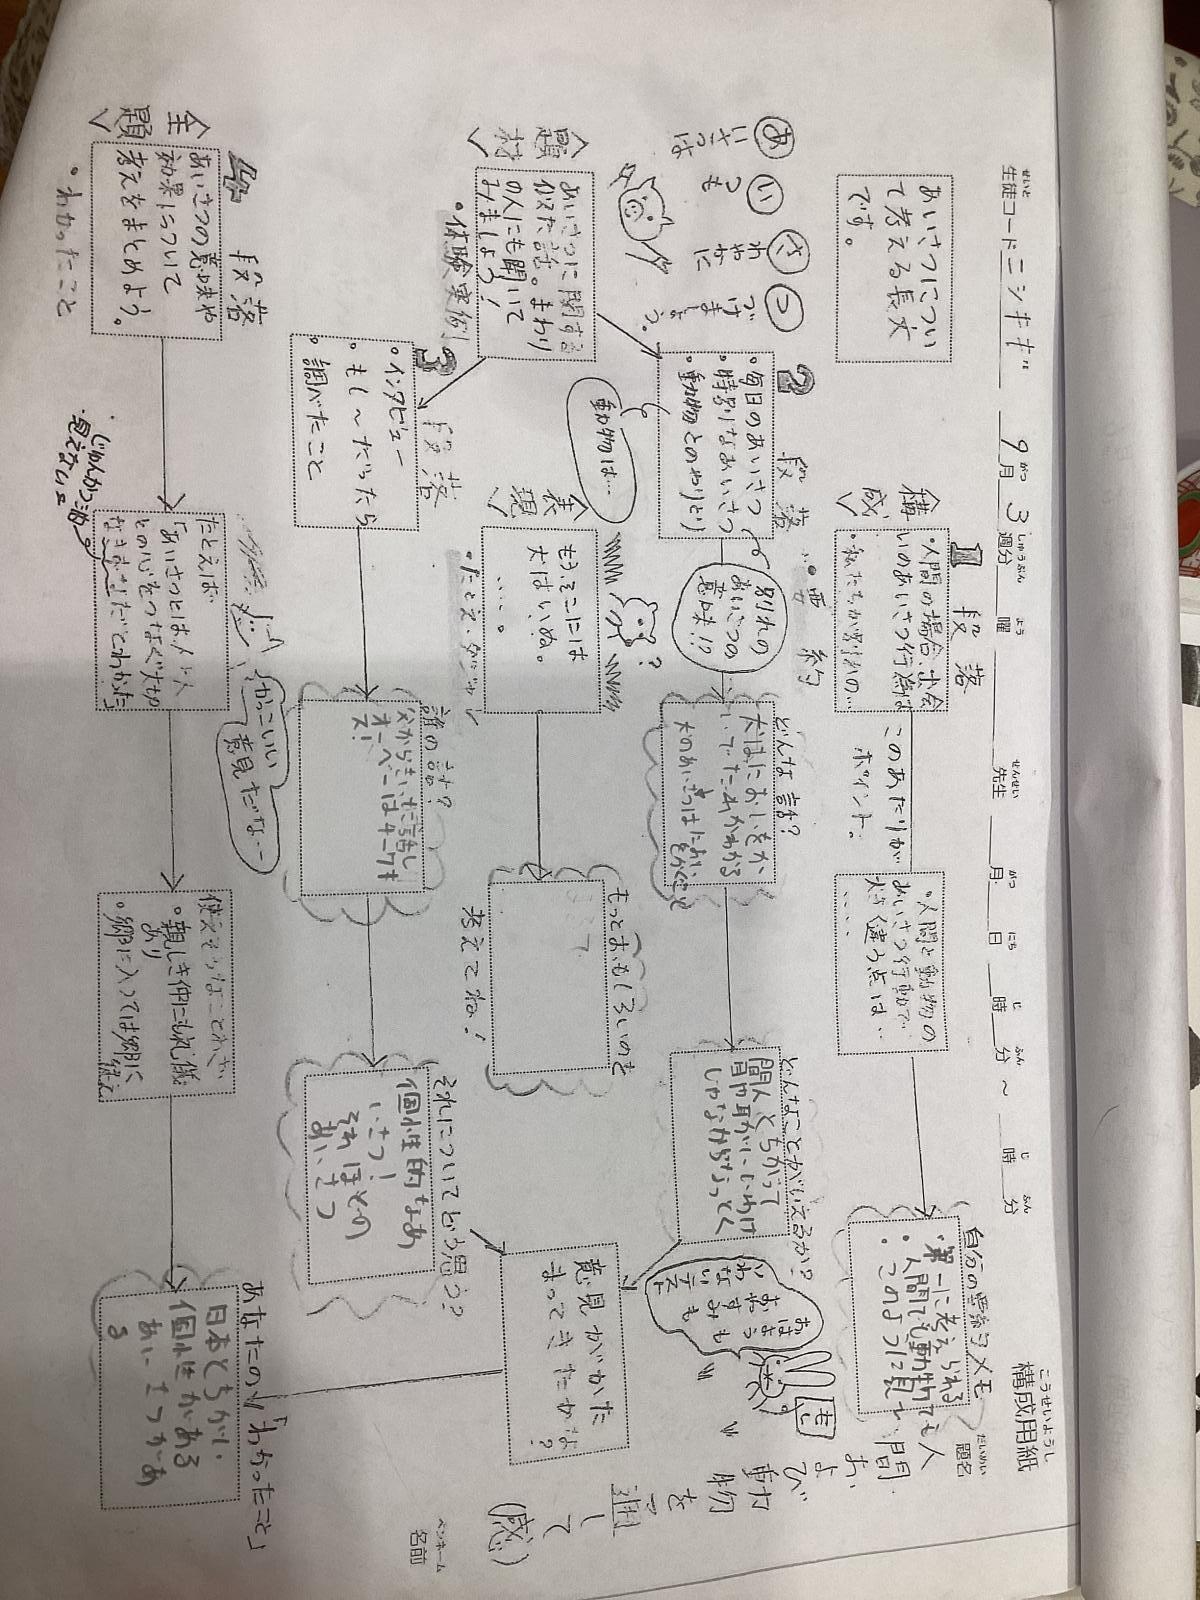 構成用紙
生徒コード ニシキギ 9月3週分 曜 先生 月 日 時 分 ~ 時 分
題名
人間および動物を通して(感)
ペンネーム
名前
あいさつについ
て考える長文
です。
あいさつは
いつも
さわやかに
つづけましょう。
<構成>
1段落
・人間の場合、出会
いのあいさつ行動は
・私たちが別れの…
・要約
このあたりが
ポイント。
・人間と動物の
あいさつ行動で
大きく違う点は…
自分の要約メモ
・第一に考えられる
・人間でも動物でも
このように
<題材>
あいさつに関する
似た話。まわり
の人にも聞いて
みましょう!
・体験実例
2段落
・毎日のあいさつ
・特別なあいさつ
・動物とのやりとり
動物は…
別れの
あいさつの
意味!?
どんな話?
犬はにおいをか
いでたれかわかる
犬のあいさつはにおい
をかぐこと
どんなことがいえるか?
間人とちがって
冒巾耳がいいわけ
じゃないからなっとく
おはよう
おやすみも
いわない
<表現>
もうそこには
犬はいぬ。
…。
・たとえ・ダジャレ
?
もっとおもしろいのを
考えてね!
意見がかた
まってきたかな?
3段落
・インタビュー
・もし~だったら
・調べたこと
誰の話?
父からきいた話し
オーベーはキーワキ
ス!
それについてどう思う?
個性的なあ
いさつ!
それほどの
あいさつ
4段落
<主題>
あいさつの意味や
効果について
考えをまとめよう。
・わかったこと
たとえば
「あいさつとは人と人
との心をつなぐ大切
なきずなだとわかった」
かっこいい
意見だなー
使えそうなことわざ
・親しき仲にも礼儀
あり
・郷に入っては郷に
従え
あなたの「わかったこと」
日本とちがい
個性がある
あいさつがあ
る